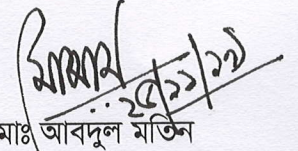 ২৫/১১/১৯
মোঃ আবদুল মতিন